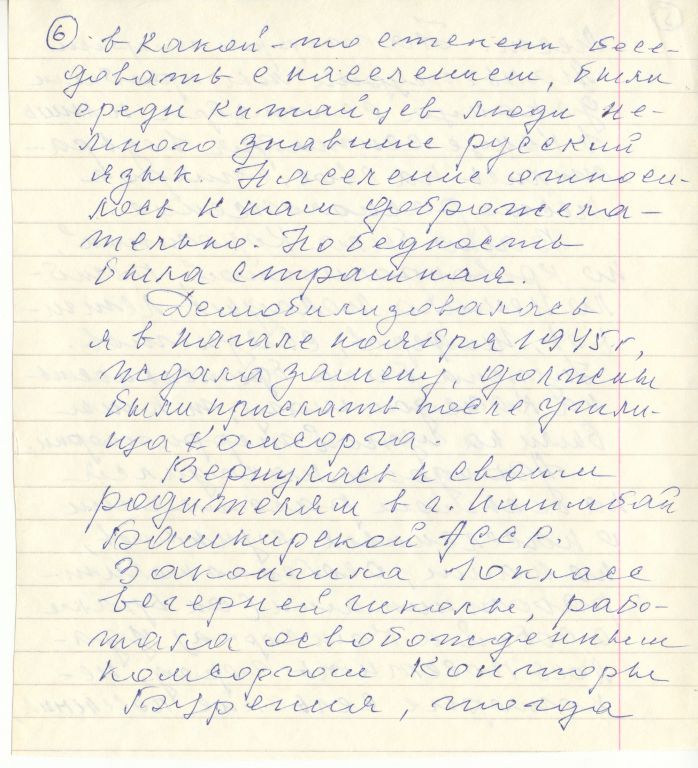 6
в какой-то степени бесе-
довать с населением, были
среди китайцев люди не-
много знавшие русский
язык. Население относи-
лось к нам доброжела-
тельно. Но бедность
была страшная.
Демобилизовалась
я в начале ноября 1945 г,
ждала замену, должны
были прислать после учили-
ща комсорга.
Вернулась к своим
родителям в г. Ишимбай
Башкирской АССР.
Закончила 10 класс
вечерней школы, рабо-
тала освобождённым
комсоргом Конторы
Бурения, тогда